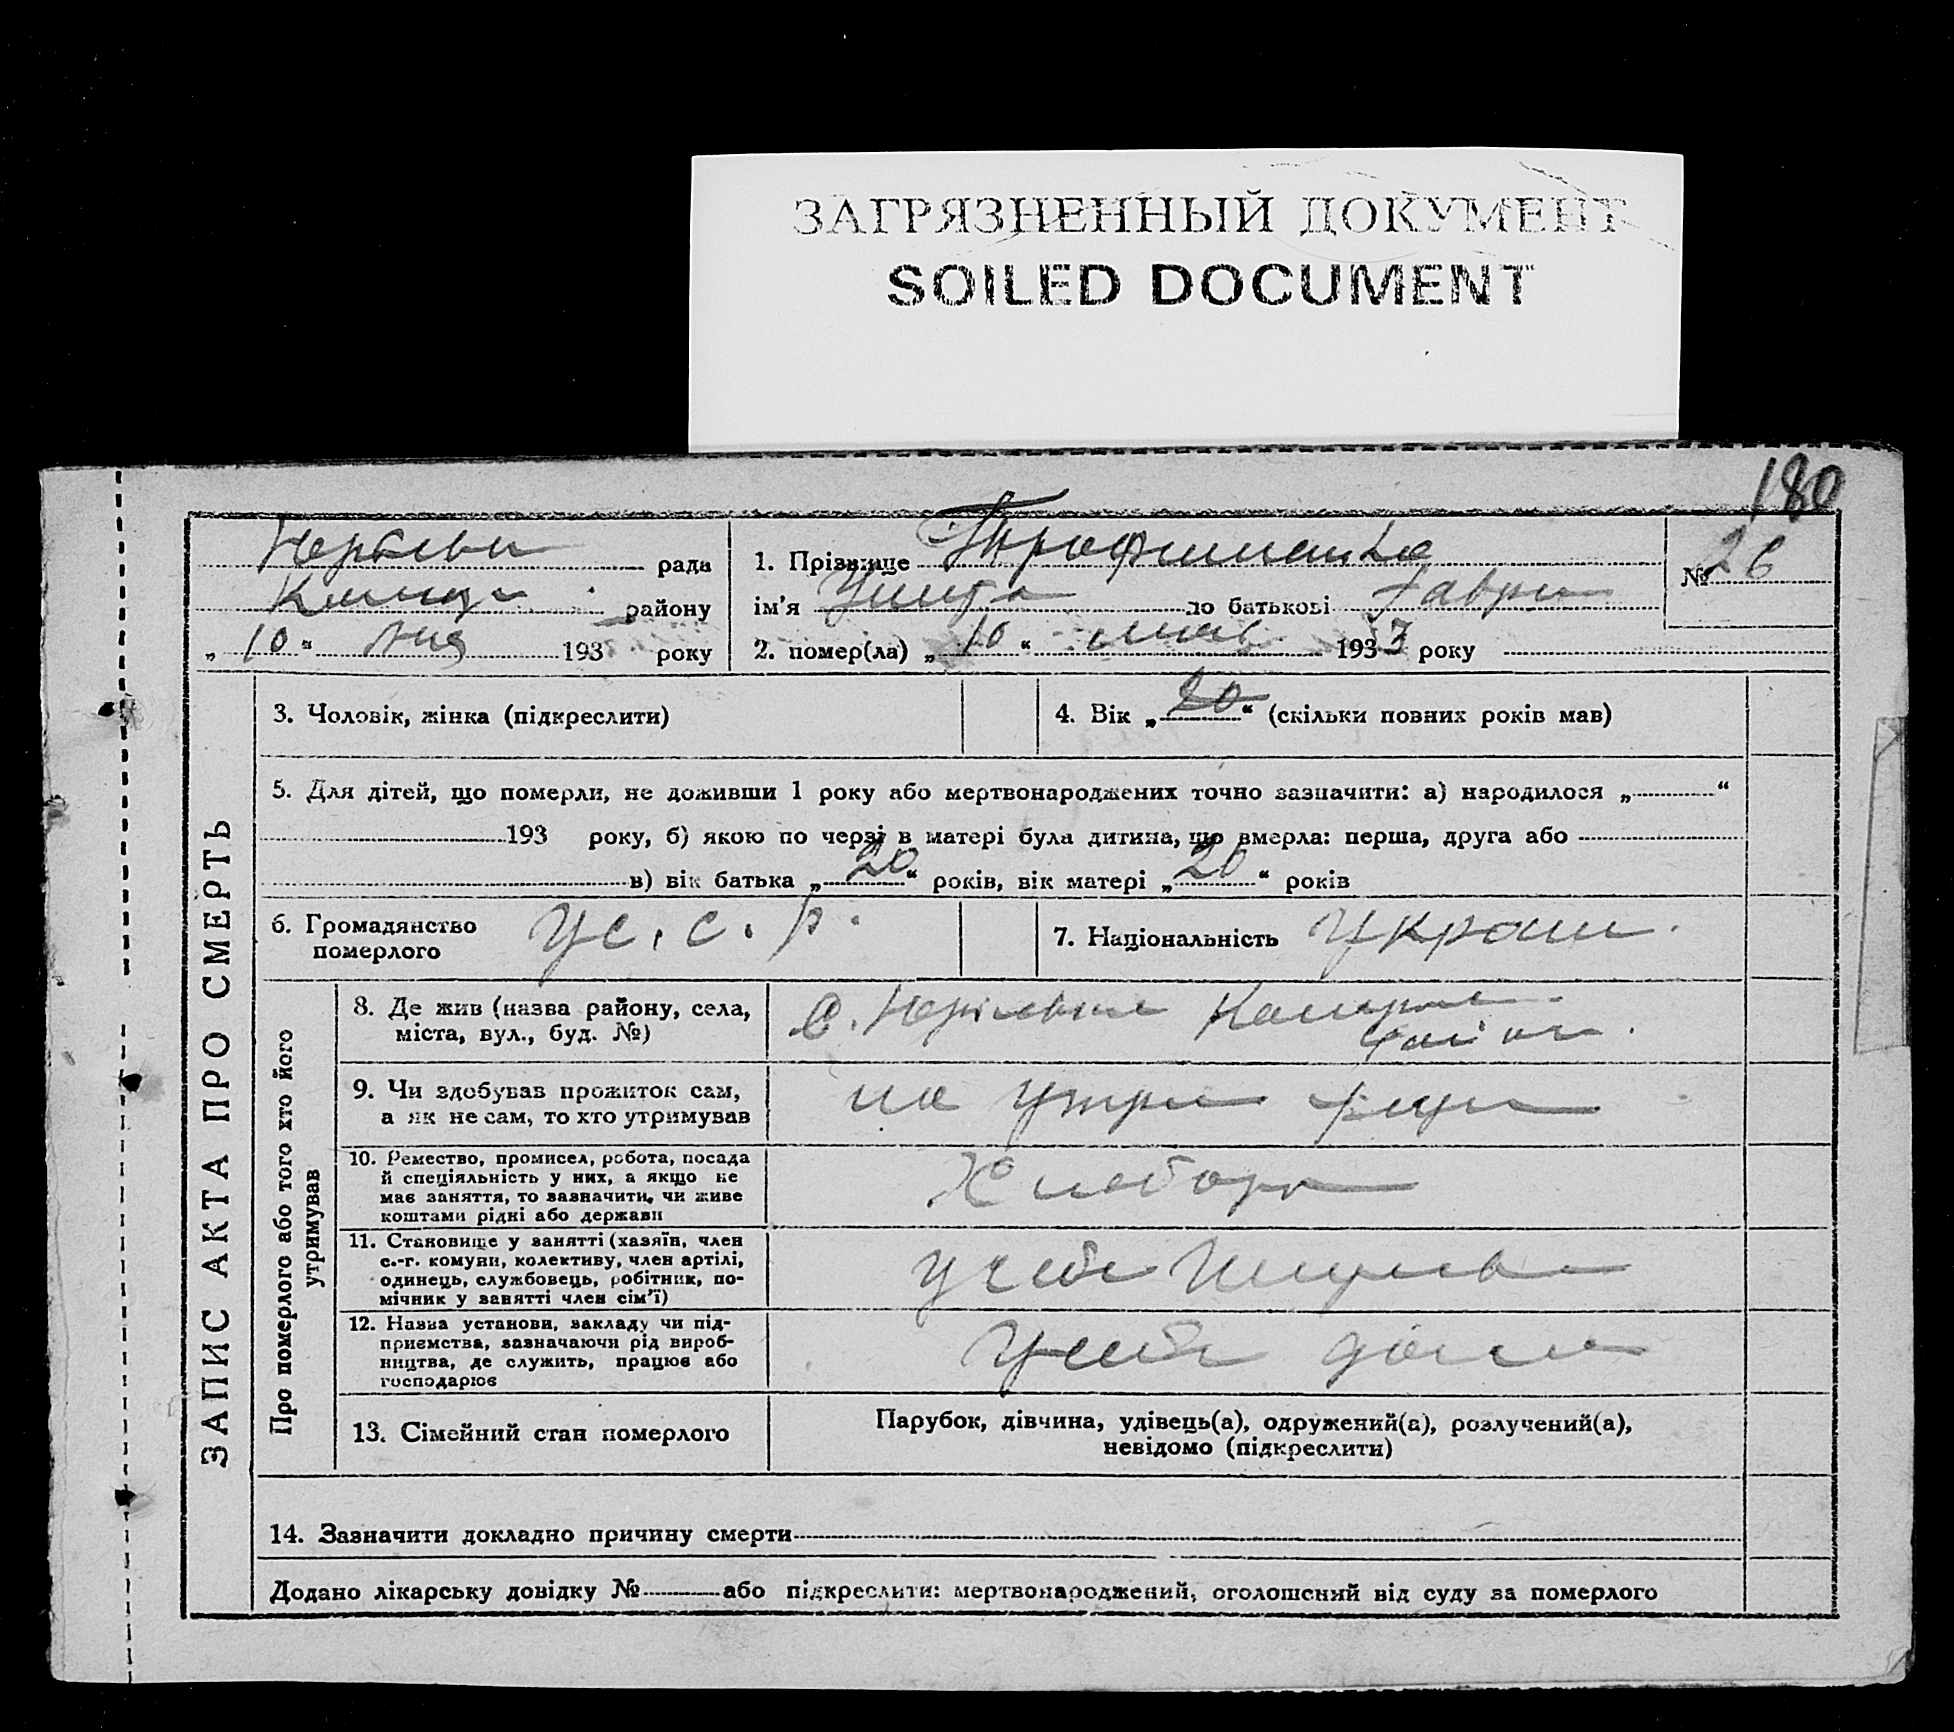 ЗАГРЯЗНЕННЫЙ ДОКУМЕНТ
SOILED DOCUMENT
180
рада
району
„ 10 “ мая 193 року
1. Прізвище
ім’я по батькові Гаври
2. помер(ла) „ 10 “ мая 1933 року
№ 26
ЗАПИС АКТА ПРО СМЕРТЬ
3. Чоловік, жінка (підкреслити)
4. Вік „ 20 “ (скільки повних років мав)
5. Для дітей, що померли, не доживши 1 року або мертвонароджених точно зазначити: а) народилося „ “
193 року, б) якою по черзі в матері була дитина, що вмерла: перша, друга або
в) вік батька „ 20 “ років, вік матері „ 20 “ років
6. Громадянство
померлого
Ус. с. р.
7. Національність Украи.
Про померлого або того хто його
утримував
8. Де жив (назва району, села,
міста, вул., буд. №)
с.
9. Чи здобував прожиток сам,
а як не сам, то хто утримував
на утри
10. Ремество, промисел, робота, посада
й спеціяльність у них, а якщо не
має заняття, то зазначити, чи живе
коштами рідні або держави
Хлебороб
11. Становище у занятті (хазяїн, член
с.-г. комуни, колективу, член артілі,
одинець, службовець, робітник, по-
мічник у занятті член сім’ї)
у себе
12. Назва установи, закладу чи під-
приємства, зазначаючи рід вироб-
ництва, де служить, працює або
господарює
У себе дома
13. Сімейний стан померлого
Парубок, дівчина, удівець(а), одружений(а), розлучений(а),
невідомо (підкреслити)
14. Зазначити докладно причину смерти
Додано лікарську довідку № або підкреслити: мертвонароджений, оголошений від суду за померлого